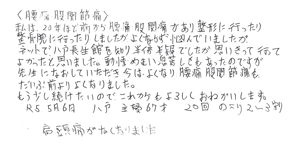 〈腰痛股関節痛〉
私は、20年ほど前から腰痛股関節痛があり整形に行ったり
整骨院に行ったりしましたがよくならず悩んでいましたが
ネットで八戸長生館を知り半信半疑でしたが思いきって行って
よかったと思いました。動悸めまい息苦しさもあったのですが
先生になおしていただき今はよくなり腰痛股関節痛も
だいぶ前よりよくなりました。
もう少し続けたいのでこれからもよろしくおねがいします。
R5 5月6日 八戸 主婦67才 20回 のこり2〜3割
肩頭痛がなくなりました